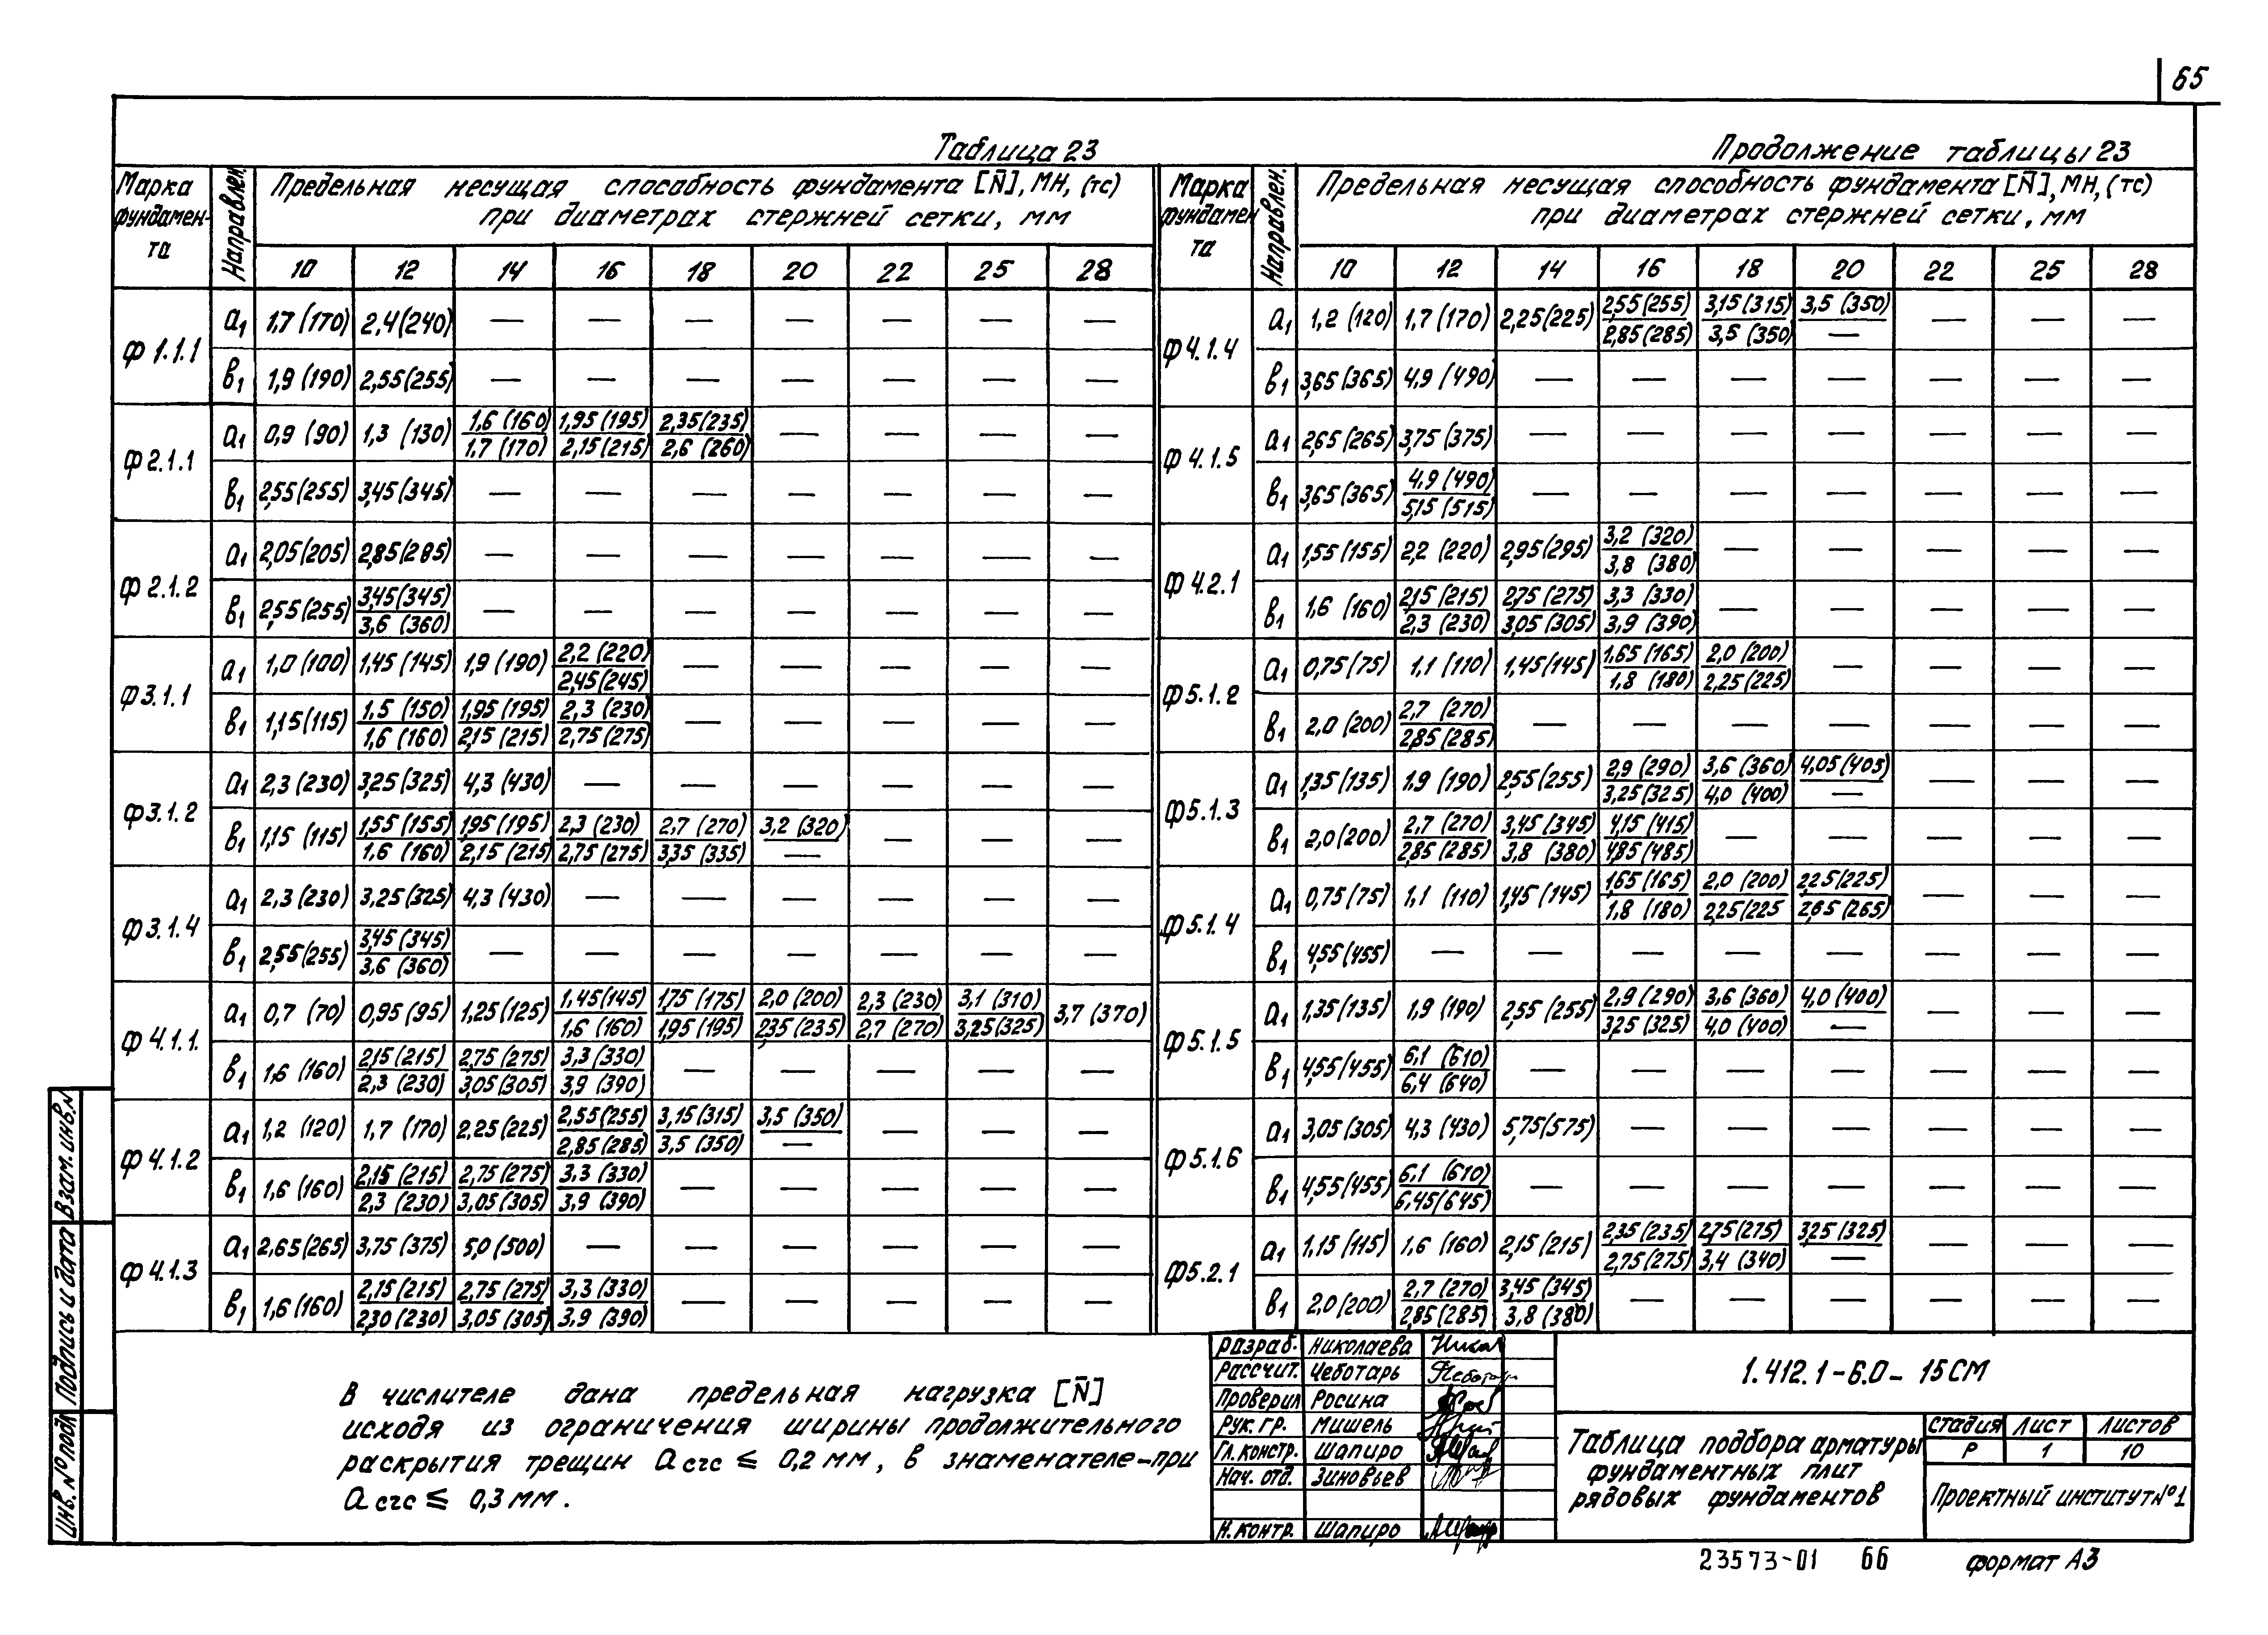 65
Таблица 23
Марка фундамен-та | Направлен. | Предельная несущая способность фундамента [N̄], МН, (тс) при диаметрах стержней сетки, мм
10 | 12 | 14 | 16 | 18 | 20 | 22 | 25 | 28
Ф 1.1.1 | а1 | 1,7 (170) | 2,4 (240) | — | — | — | — | — | — | —
в1 | 1,9 (190) | 2,55 (255) | — | — | — | — | — | — | —
Ф 2.1.1 | а1 | 0,9 (90) | 1,3 (130) | 1,6 (160) / 1,7 (170) | 1,95 (195) / 2,15 (215) | 2,35 (235) / 2,6 (260) | — | — | — | —
в1 | 2,55 (255) | 3,45 (345) | — | — | — | — | — | — | —
Ф 2.1.2 | а1 | 2,05 (205) | 2,85 (285) | — | — | — | — | — | — | —
в1 | 2,55 (255) | 3,45 (345) / 3,6 (360) | — | — | — | — | — | — | —
Ф 3.1.1 | а1 | 1,0 (100) | 1,45 (145) | 1,9 (190) | 2,2 (220) / 2,45 (245) | — | — | — | — | —
в1 | 1,15 (115) | 1,5 (150) / 1,6 (160) | 1,95 (195) / 2,15 (215) | 2,3 (230) / 2,75 (275) | — | — | — | — | —
Ф 3.1.2 | а1 | 2,3 (230) | 3,25 (325) | 4,3 (430) | — | — | — | — | — | —
в1 | 1,15 (115) | 1,55 (155) / 1,6 (160) | 1,95 (195) / 2,15 (215) | 2,3 (230) / 2,75 (275) | 2,7 (270) / 3,35 (335) | 3,2 (320) / — | — | — | —
Ф 3.1.4 | а1 | 2,3 (230) | 3,25 (325) | 4,3 (430) | — | — | — | — | — | —
в1 | 2,55 (255) | 3,45 (345) / 3,6 (360) | — | — | — | — | — | — | —
Ф 4.1.1. | а1 | 0,7 (70) | 0,95 (95) | 1,25 (125) | 1,45 (145) / 1,6 (160) | 1,75 (175) / 1,95 (195) | 2,0 (200) / 2,35 (235) | 2,3 (230) / 2,7 (270) | 3,1 (310) / 3,25 (325) | 3,7 (370)
в1 | 1,6 (160) | 2,15 (215) / 2,3 (230) | 2,75 (275) / 3,05 (305) | 3,3 (330) / 3,9 (390) | — | — | — | — | —
Ф 4.1.2 | а1 | 1,2 (120) | 1,7 (170) | 2,25 (225) | 2,55 (255) / 2,85 (285) | 3,15 (315) / 3,5 (350) | 3,5 (350) / — | — | — | —
в1 | 1,6 (160) | 2,15 (215) / 2,3 (230) | 2,75 (275) / 3,05 (305) | 3,3 (330) / 3,9 (390) | — | — | — | — | —
Ф 4.1.3 | а1 | 2,65 (265) | 3,75 (375) | 5,0 (500) | — | — | — | — | — | —
в1 | 1,6 (160) | 2,15 (215) / 2,30 (230) | 2,75 (275) / 3,05 (305) | 3,3 (330) / 3,9 (390) | — | — | — | — | —
Продолжение таблицы 23
Марка фундамен та | Направлен. | Предельная несущая способность фундамента [N̄], МН, (тс) при диаметрах стержней сетки, мм
10 | 12 | 14 | 16 | 18 | 20 | 22 | 25 | 28
Ф 4.1.4 | а1 | 1,2 (120) | 1,7 (170) | 2,25 (225) | 2,55 (255) / 2,85 (285) | 3,15 (315) / 3,5 (350) | 3,5 (350) / — | — | — | —
в1 | 3,65 (365) | 4,9 (490) | — | — | — | — | — | — | —
Ф 4.1.5 | а1 | 2,65 (265) | 3,75 (375) | — | — | — | — | — | — | —
в1 | 3,65 (365) | 4,9 (490) / 5,15 (515) | — | — | — | — | — | — | —
Ф 4.2.1 | а1 | 1,55 (155) | 2,2 (220) | 2,95 (295) | 3,2 (320) / 3,8 (380) | — | — | — | — | —
в1 | 1,6 (160) | 2,15 (215) / 2,3 (230) | 2,75 (275) / 3,05 (305) | 3,3 (330) / 3,9 (390) | — | — | — | — | —
Ф 5.1.2 | а1 | 0,75 (75) | 1,1 (110) | 1,45 (145) | 1,65 (165) / 1,8 (180) | 2,0 (200) / 2,25 (225) | — | — | — | —
в1 | 2,0 (200) | 2,7 (270) / 2,85 (285) | — | — | — | — | — | — | —
Ф 5.1.3 | а1 | 1,35 (135) | 1,9 (190) | 2,55 (255) | 2,9 (290) / 3,25 (325) | 3,6 (360) / 4,0 (400) | 4,05 (405) / — | — | — | —
в1 | 2,0 (200) | 2,7 (270) / 2,85 (285) | 3,45 (345) / 3,8 (380) | 4,15 (415) / 4,85 (485) | — | — | — | — | —
Ф 5.1.4 | а1 | 0,75 (75) | 1,1 (110) | 1,45 (145) | 1,65 (165) / 1,8 (180) | 2,0 (200) / 2,25 (225 | 2,25 (225) / 2,65 (265) | — | — | —
в1 | 4,55 (455) | — | — | — | — | — | — | — | —
Ф 5.1.5 | а1 | 1,35 (135) | 1,9 (190) | 2,55 (255) | 2,9 (290) / 3,25 (325) | 3,6 (360) / 4,0 (400) | 4,0 (400) / — | — | — | —
в1 | 4,55 (455) | 6,1 (610) / 6,4 (640) | — | — | — | — | — | — | —
Ф 5.1.6 | а1 | 3,05 (305) | 4,3 (430) | 5,75 (575) | — | — | — | — | — | —
в1 | 4,55 (455) | 6,1 (610) / 6,45 (645) | — | — | — | — | — | — | —
Ф 5.2.1 | а1 | 1,15 (115) | 1,6 (160) | 2,15 (215) | 2,35 (235) / 2,75 (275) | 2,75 (275) / 3,4 (340) | 3,25 (325) / — | — | — | —
в1 | 2,0 (200) | 2,7 (270) / 2,85 (285) | 3,45 (345) / 3,8 (380) | — | — | — | — | — | —
В числителе дана предельная нагрузка [N̄]
исходя из ограничения ширины продолжительного
раскрытия трещин a crc ≤ 0,2 мм, в знаменателе - при
a crc ≤ 0,3 мм.
Разраб. Николаева
Рассчит. Чеботарь
Проверил Росина
Рук. гр. Мишель
Гл. констр. Шапиро
Нач. отд. Зиновьев
Н. контр. Шапиро
1.412.1-6.0-15СМ
Таблица подбора арматуры
фундаментных плит
рядовых фундаментов
Стадия Лист Листов
Р 1 10
Проектный институт №1
23573-01 66 формат А3
Инв. № подл Подпись и дата Взам. инв. №